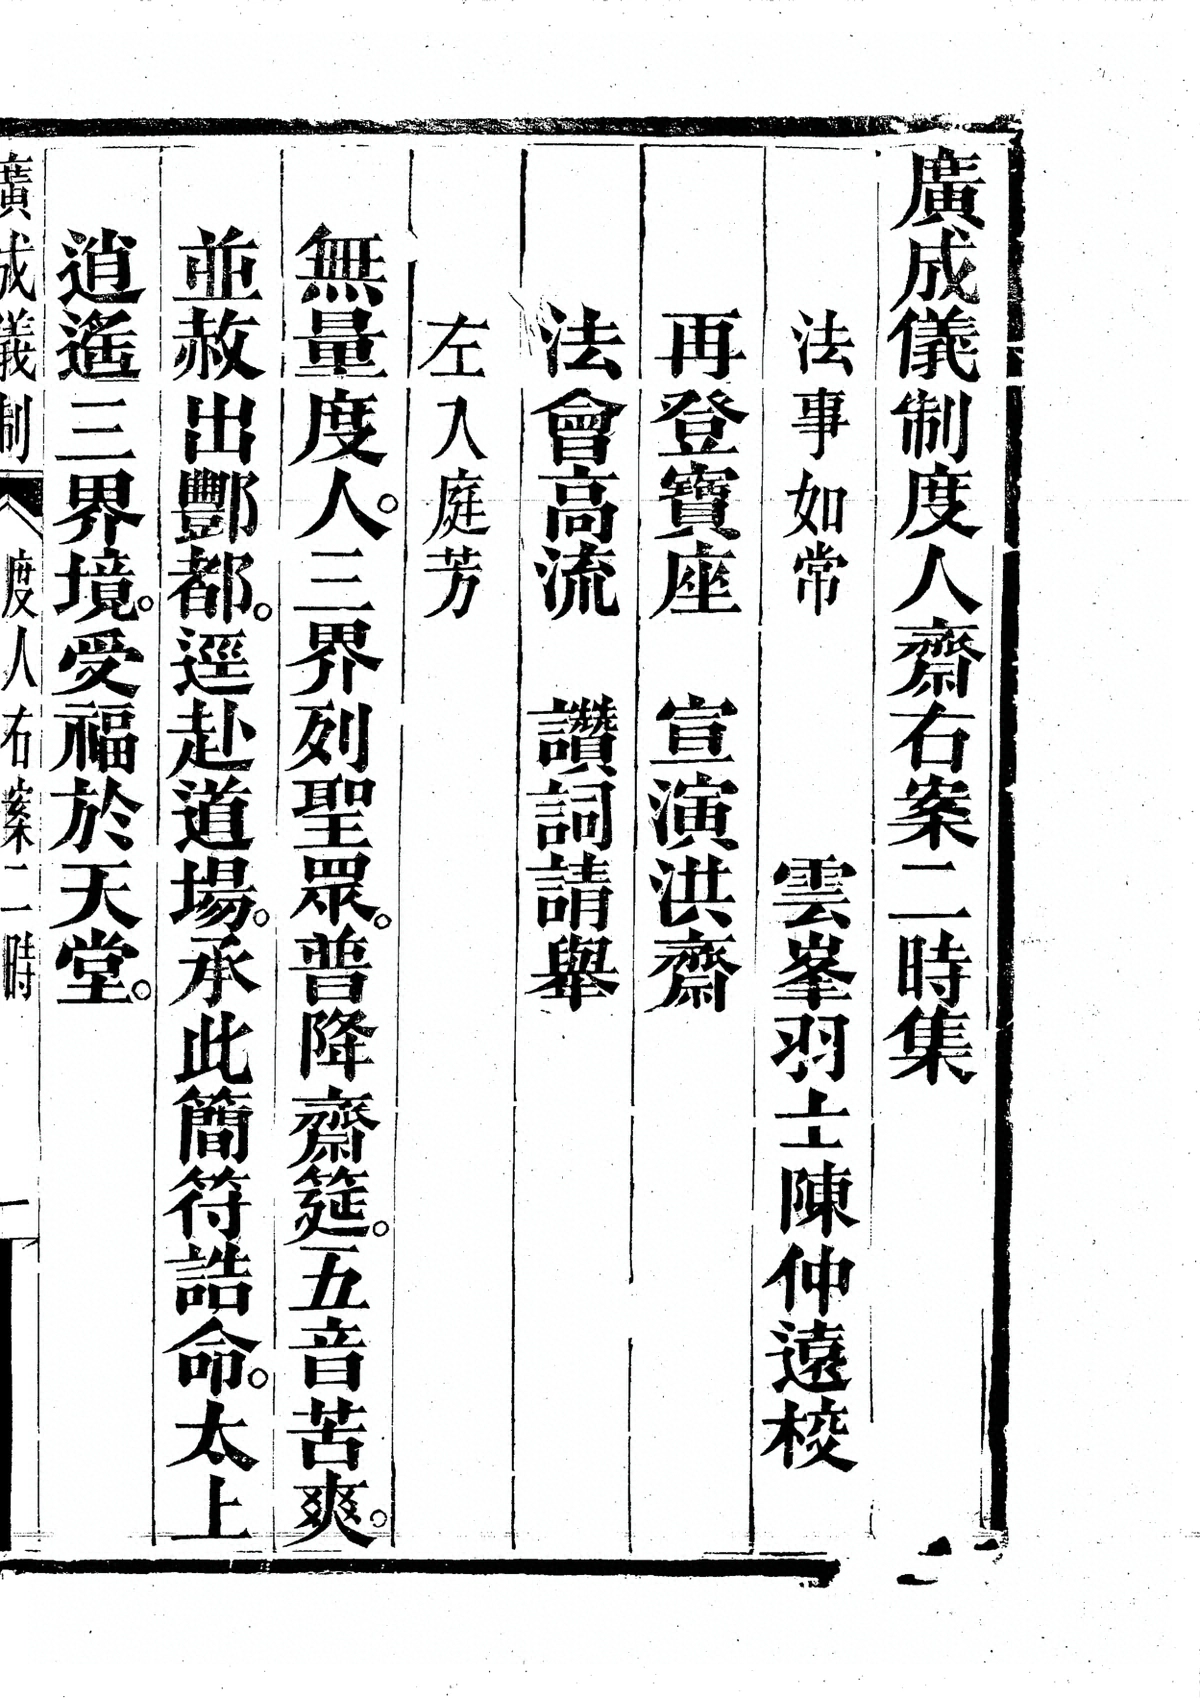 廣成儀制度人齋右案二時集
法事如常　雲峯羽士陳仲遠校
再登寶座　宣演洪齋
法會高流　讚詞請舉
左入庭芳
無量度人。三界列聖眾。普降齋筵。五音苦爽。
並赦出酆都。逕赴道場。承此簡符誥命。太上
逍遙三界境。受福於天堂。
廣成儀制　度人右案二時　一